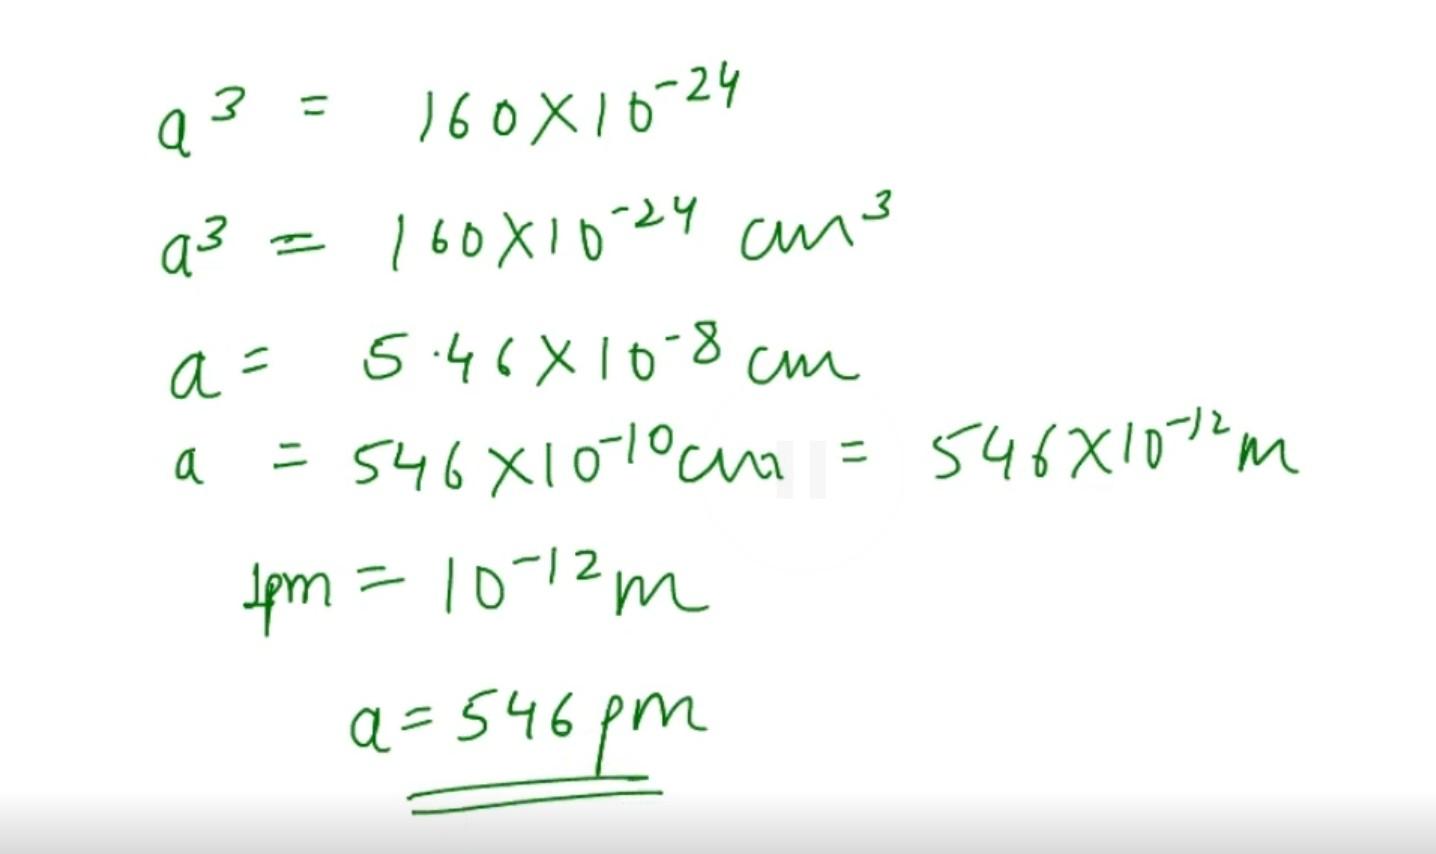 a³ = 160×10⁻²⁴
a³ = 160×10⁻²⁴ cm³
a = 5.46×10⁻⁸ cm
a = 546×10⁻¹⁰cm = 546×10⁻¹²m
1pm = 10⁻¹²m
a = 546 pm